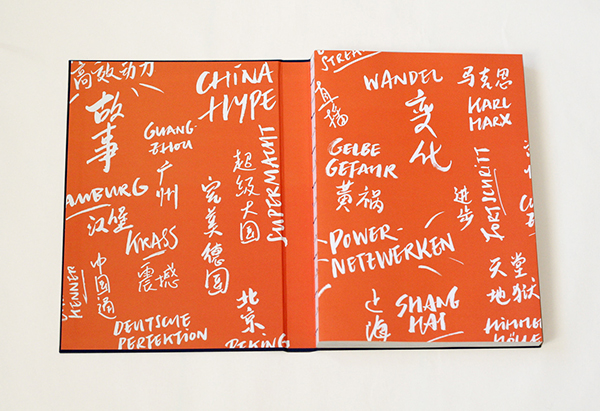 高效动力
CHINA
HYPE
故事
GUANG-
ZHOU
广州
超级大国
SUPERMACHT
AMBURG
汉堡
完美德国
KRASS
震撼
KENNER
中国通
北京
PEKING
DEUTSCHE
PERFEKTION
STREA
直播
WANDEL
变化
马克思
KARL
MARX
GELBE
GEFAHR
黄祸
进步
FORTSCHRITT
POWER-
NETZWERKEN
上海
SHANG
HAI
天堂
地狱
HIMMEL
HÖLLE